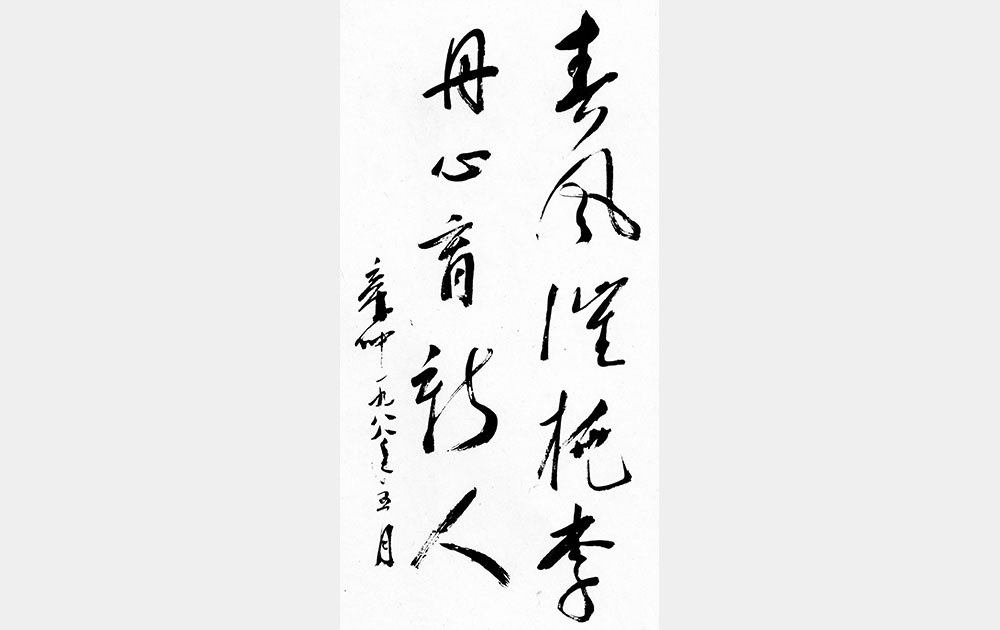 春风催桃李
丹心育新人
章仲一九八八年五月